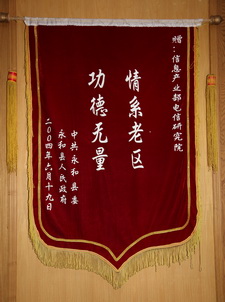 赠：信息产业部电信研究院
情系老区
功德无量
中共永和县委
永和县人民政府
二00四年六月十九日